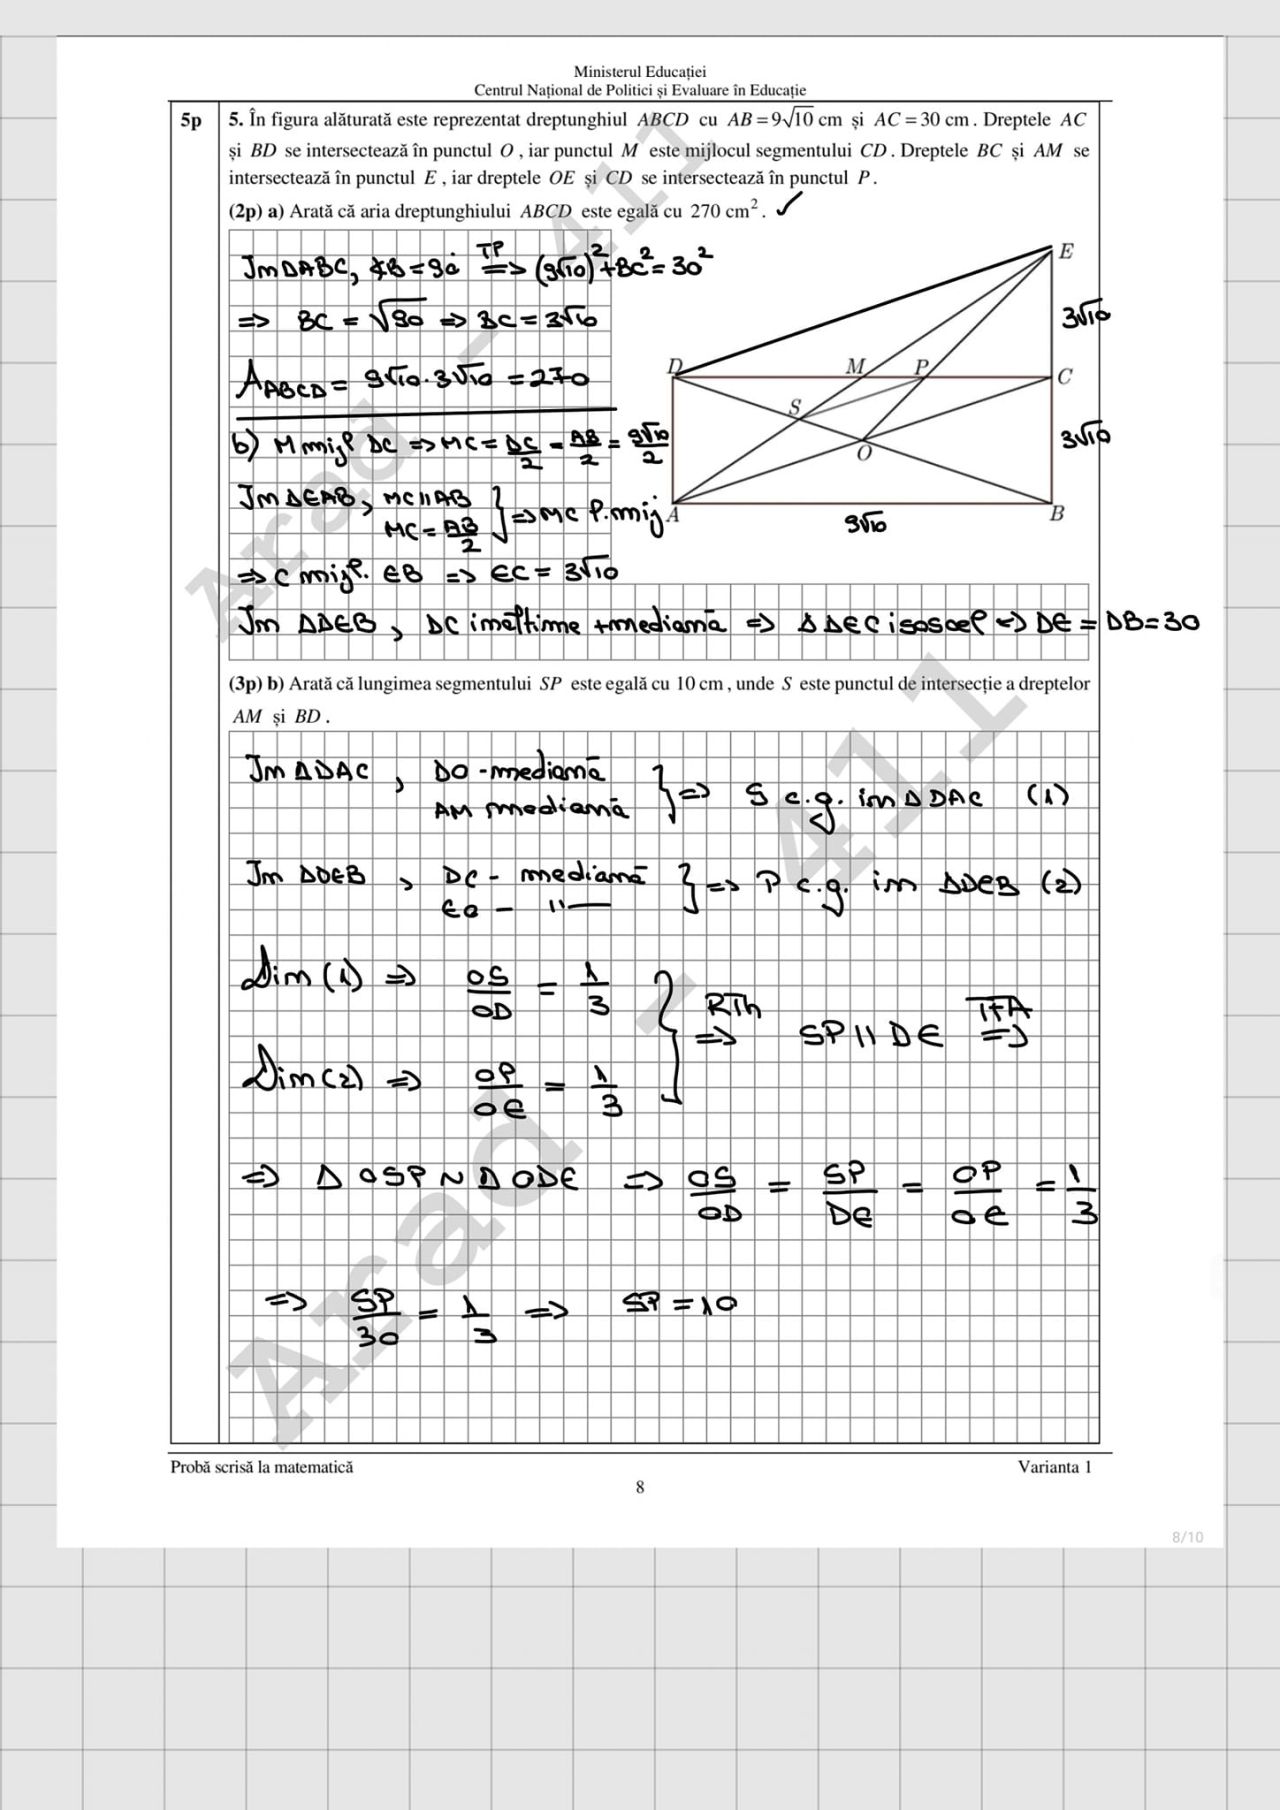 Ministerul Educației
Centrul Național de Politici și Evaluare în Educație
5p
5. În figura alăturată este reprezentat dreptunghiul ABCD cu AB = 9√10 cm și AC = 30 cm. Dreptele AC
și BD se intersectează în punctul O, iar punctul M este mijlocul segmentului CD. Dreptele BC și AM se
intersectează în punctul E, iar dreptele OE și CD se intersectează în punctul P.
(2p) a) Arată că aria dreptunghiului ABCD este egală cu 270 cm². ✓
Im ΔABC, ∢B = 90° TP => (9√10)² + BC² = 30²
=> BC = √90 => BC = 3√10
A ABCD = 9√10 · 3√10 = 270
b) M mijl DC => MC = DC/2 = AB/2 = 9√10/2
Im ΔEAB, MC || AB
MC = AB/2 } => MC l.mij
=> C mijl. EB => EC = 3√10
Im ΔDEB, DC imălțime + mediamă => ΔDEC isoscel => DE = DB = 30
E
3√10
D M P C
S
3√10
O
A B
9√10
(3p) b) Arată că lungimea segmentului SP este egală cu 10 cm, unde S este punctul de intersecție a dreptelor
AM și BD.
Im ΔDAC, DO - mediamă
AM mediamă } => S c.g. im ΔDAC (1)
Im ΔDEB, DC - mediamă
EO - "— } => P c.g. im ΔDEB (2)
Dim (1) => OS/OD = 1/3
Dim (2) => OP/OE = 1/3 } RTh => SP || DE TFA =>
=> ΔOSP ~ ΔODE => OS/OD = SP/DE = OP/OE = 1/3
=> SP/30 = 1/3 => SP = 10
Probă scrisă la matematică Varianta 1
8
8/10
Arad - 411
Arad - 411